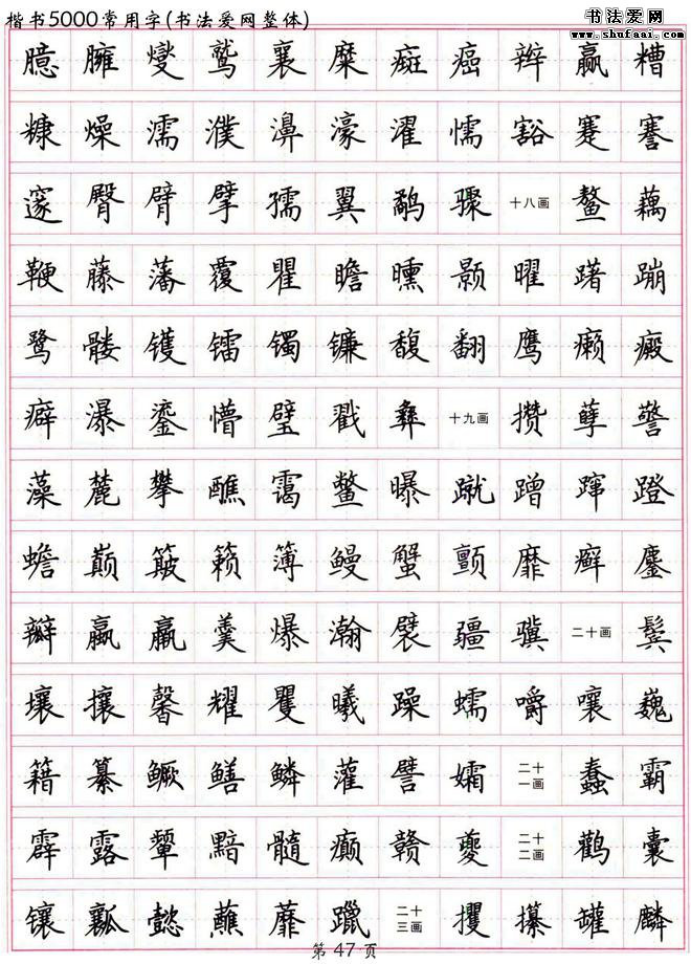 楷书5000常用字(书法爱网整体)
书法爱网
www.shufaai.com
臆 臃 燮 鹫 襄 糜 癍 癌 辫 赢 糟
糠 燥 濡 濮 濞 濠 濯 懦 豁 蹇 謇
邃 臀 臂 擘 孺 翼 鹬 骤 十八画 鳌 藕
鞭 藤 藩 覆 瞿 瞻 曛 颢 曜 躇 蹦
鹭 髅 镬 镭 镯 镰 馥 翻 鹰 癞 癜
癖 瀑 鎏 懵 璧 戳 彝 十九画 攒 孽 警
藻 麓 攀 醮 霭 鳖 曝 蹴 蹭 蹿 蹬
蟾 巅 簸 籁 簿 鳗 蟹 颤 靡 癣 鏖
瓣 羸 赢 羹 爆 瀚 襞 疆 骥 二十画 鬓
壤 攘 馨 耀 矍 曦 躁 蠕 嚼 嚷 巍
籍 纂 鳜 鳝 鳞 灌 譬 孀 二十一画 蠢 霸
霹 露 颦 黯 髓 癫 赣 夔 二十二画 鹳 囊
镶 瓤 懿 蘸 蘼 躐 二十三画 攫 攥 罐 麟
第 47 页